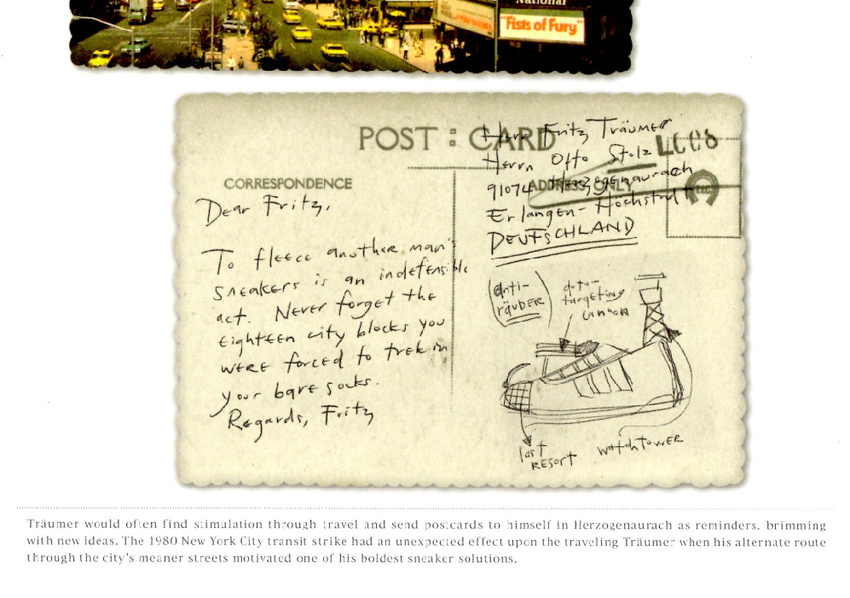 National
"Fists of Fury"
POST : CARD
CORRESPONDENCE
ADDRESS ONLY
Herr Fritz Träumer
Herrn Otto Stolz
91074 Herzogenaurach
Erlangen-Höchstadt
DEUTSCHLAND
Dear Fritz,
To fleece another man's
sneakers is an indefensible
act. Never forget the
eighteen city blocks you
were forced to trek in
your bare socks.
Regards, Fritz
(anti-
räuber)
auto-
targeting
cannon
last
resort
watchtower
Träumer would often find stimulation through travel and send postcards to himself in Herzogenaurach as reminders, brimming
with new ideas. The 1980 New York City transit strike had an unexpected effect upon the traveling Träumer when his alternate route
through the city's meaner streets motivated one of his boldest sneaker solutions.